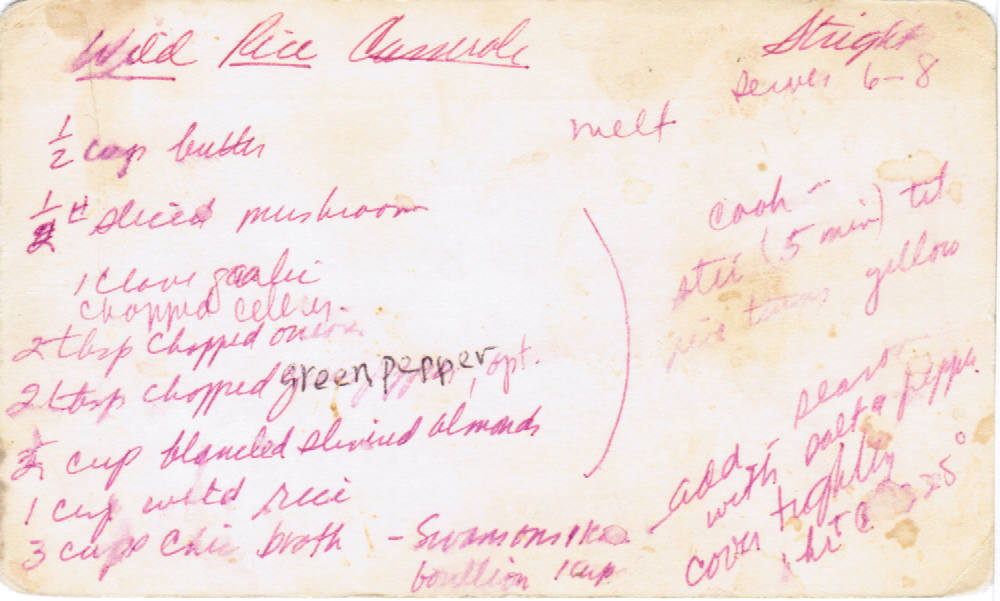 Wild Rice Casserole
Stright
serves 6-8
1/2 cup butter
melt
1/2 # sliced mushroom
1 clove garlic
chopped celery
2 tbsp chopped onion
2 tbsp chopped green pepper, opt.
1/2 cup blanched slivered almonds
1 cup wild rice
3 cups chic broth - Swansons
bouillion 1 cup
cook -
stir (5 min) til
rice turns yellow
add - season
with salt & pepper
cover tightly
1 hr @ 325°